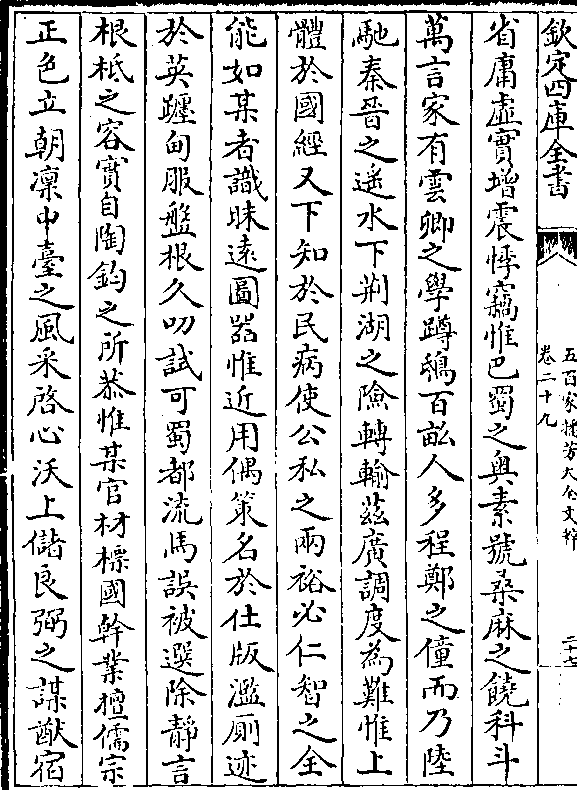 欽定四庫全書
五百家播芳大全文粹
卷二十九
二十七
省庸虛實增震悸竊惟巴蜀之奥素號桑麻之饒科斗
萬言家有雲卿之學蹲鴟百畝人多程鄭之僮而乃陸
馳秦晉之遥水下荆湖之險轉輸兹廣調度為難惟上
體於國經又下知於民病使公私之兩裕必仁智之全
能如某者識昧遠圖器惟近用偶策名於仕版濫厠迹
於英躔甸服盤根久叨試可蜀都流馬誤被選除静言
根柢之容實自陶鈞之所恭惟某官材標國幹業檀儒宗
正色立朝凛中臺之風采啓心沃上儲良弼之謀猷宿